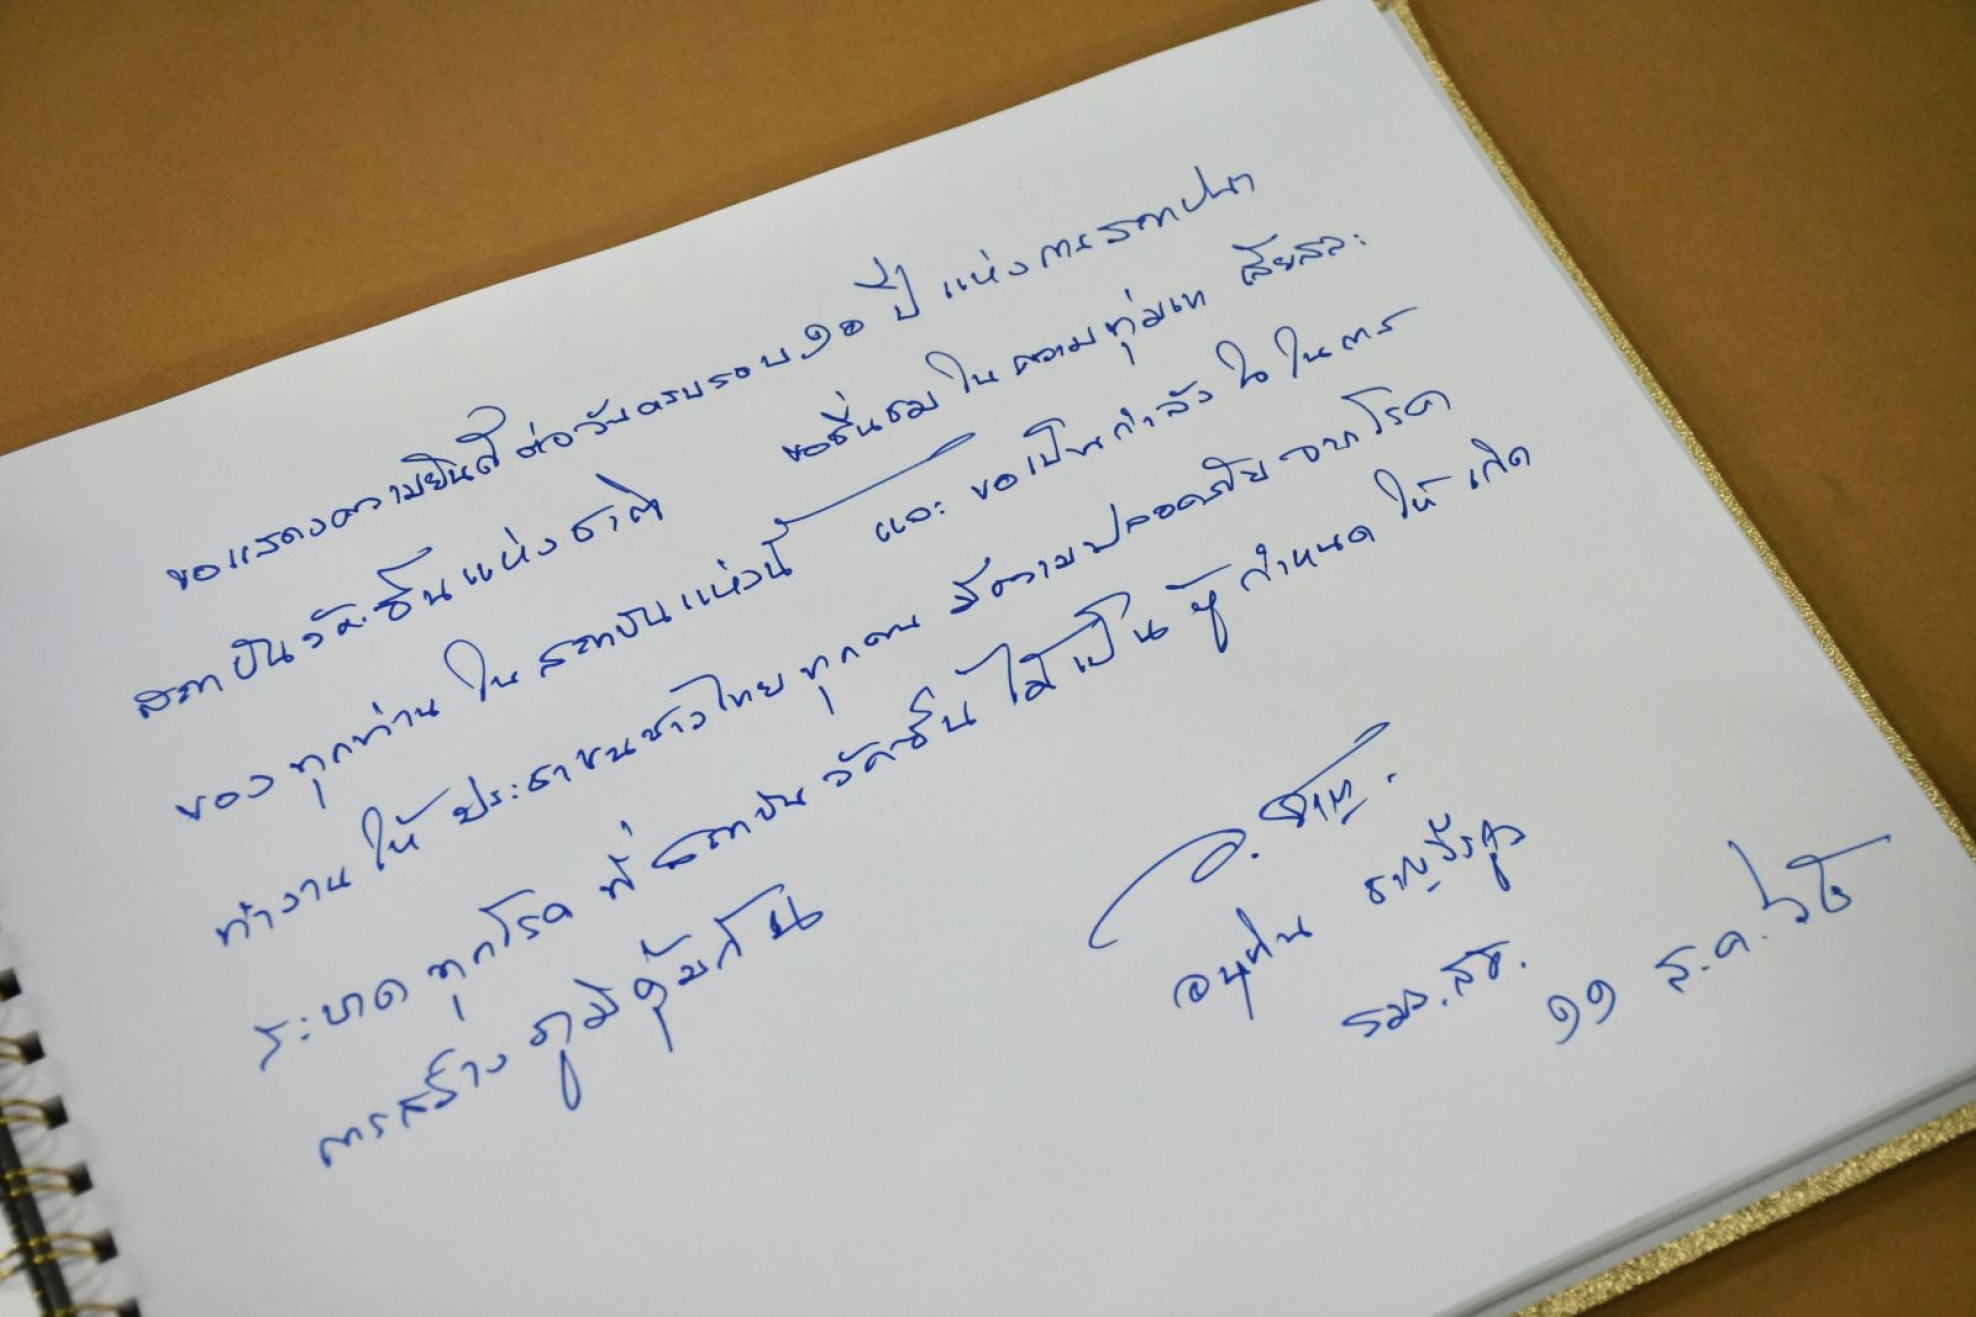 ขอแสดงความยินดี ต่อวันครบรอบ ๑๐ ปี แห่งการสถาปนา
สถาบันวัคซีนแห่งชาติ ขอชื่นชมในความทุ่มเท เสียสละ
ของทุกท่านในสถาบันแห่งนี้ และ ขอเป็นกำลังใจในการ
ทำงานให้ประชาชนชาวไทยทุกคน มีความปลอดภัยจากโรค
ระบาดทุกโรค ที่สถาบันวัคซีนได้เป็นผู้กำหนดให้เกิด
การสร้างภูมิคุ้มกัน
อนุทิน ชาญวีรกูล
รมว.สธ.
๑๑ ส.ค. ๖๕